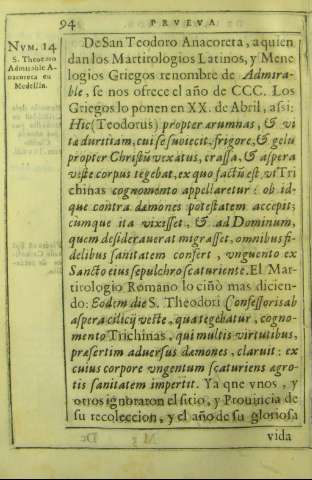 94 PRVEVA
NVM. 14
S. Theodoro
Admirable A-
nacoreta en
Medellin.
De San Teodoro Anacoreta, a quien
dan los Martirologios Latinos, y Mene
logios Griegos renombre de Admira-
ble, se nos ofrece el año de CCC. Los
Griegos lo ponen en XX. de Abril, assi:
Hic (Teodorus) propter ærumnas, & vi
tæ duritiam, cui se subiecit, frigore, & gelu
propter Christū vexatus, crassa, & aspera
veste corpus tegebat, ex quo factū est, vt Tri
chinas cognomento appellaretur: ob id-
que contra dæmones potestatem accepit;
cumque ita vixisset, & ad Dominum,
quem desiderauerat migrasset, omnibus fi-
delibus sanitatem confert, vnguento ex
Sancto eius sepulchro scaturiente. El Mar-
tirologio Romano lo ciñò mas dicien-
do: Eodem die S. Theodori Confessoris ab
aspera cilicij veste, qua tegebatur, cogno-
mento Trichinas, qui multis virtutibus,
præsertim aduersus dæmones, claruit: ex
cuius corpore vngentum scaturiens agro-
tis sanitatem impertit. Ya que vnos, y
otros ignoraron el sitio, y Prouincia de
su recoleccion, y el año de su gloriosa
vida